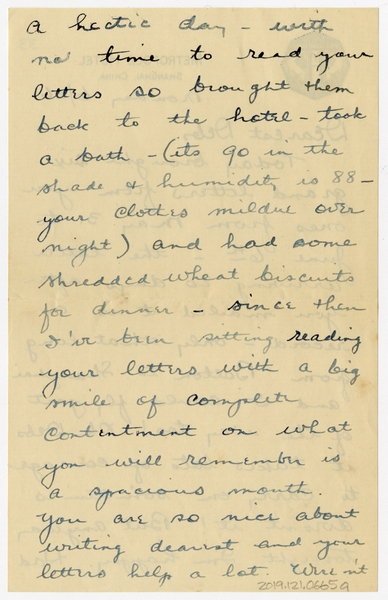 a hectic day - with
no time to read your
letters so brought them
back to the hotel - took
a bath - (its 90 in the
shade & humidity is 88 -
your clothes mildue over
night) and had some
shredded wheat biscuits
for dinner - since then
I've been sitting reading
your letters with a big
smile of complete
contentment on what
you will remember is
a spacious mouth.
You are so nice about
writing dearest and your
letters help a lot. Were n't
2019.121.0665a